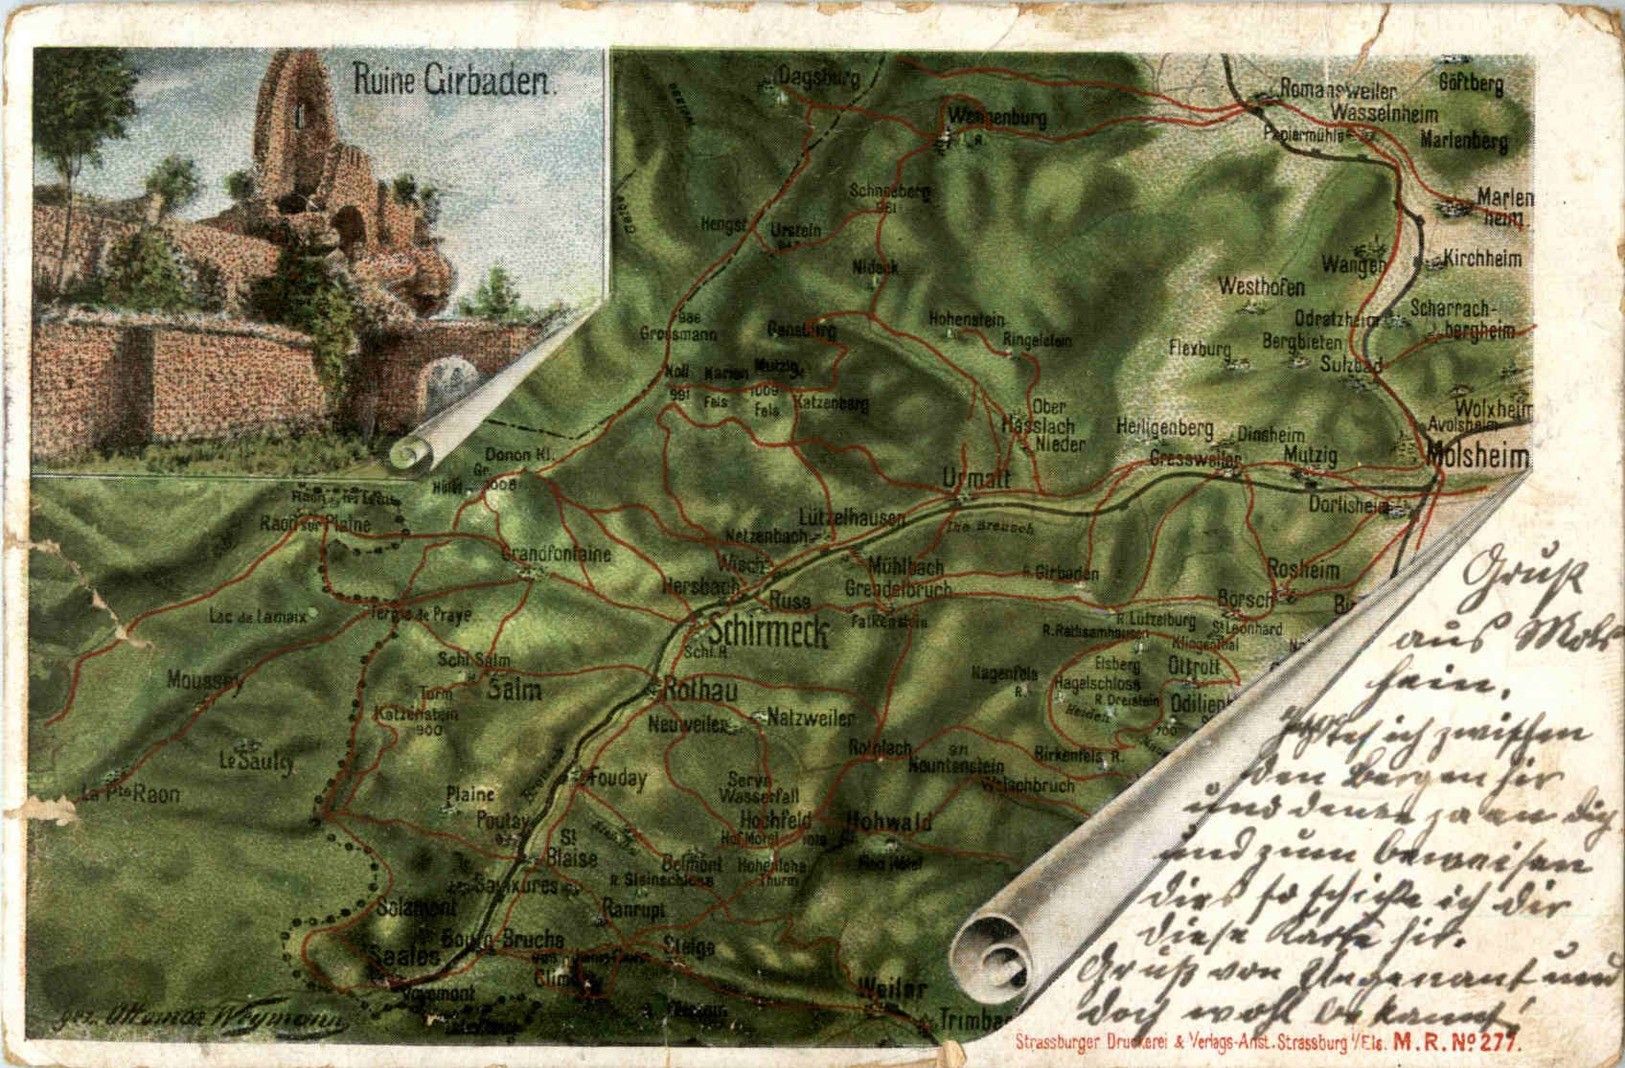 Ruine Girbaden.
Dagsburg
Romansweiler
Göftberg
Wasselnheim
Wangenburg
R.
Papiermühle
Marlenberg
Schneeberg
961
Marlen
heim.
Hengst
Urstein
Kirchheim
Wangen
Nideck
Westhofen
Scharrach-
bergheim
Odratzheim
Gensburg
Hohenstein
Ringelstein
Grossmann
Bergbieten
Flexburg
Sulzbad
Noll
991
Karlen
Fels
Mutzig
1009
Fels
Katzenberg
Ober
Haslach
Nieder
Wolxheim
Avolsheim
Heiligenberg
Dinsheim
Gressweiler
Mutzig
Molsheim
Donon Kl.
Gr.
1008
Hôtel
Urmatt
Dorlisheim
Raon sur Plaine
Lützelhausen
Netzenbach
The Breusch
Grandfontaine
Wisch
Mühlbach
R. Girbaden
Rosheim
Hersbach
Grendelbruch
Russ
Börsch
Lac de Lamaix
Schirmeck
Falkenstein
R. Lützelburg
St Leonhard
R. Rathsamhausen
Klingenthal
Schl. R.
Schl. Salm
Salm
Elsberg
Ottrott
Moussey
Rothau
Nagenfels
R.
Hagelschloss
R. Dreistein
Odilien
Turm
Katzenstein
900
Heiden
Neuweiler
Natzweiler
700
Rothlach
Birkenfels R.
Le Saulcy
Welschbruch
Fouday
Serva
Wasserfall
La Pte Raon
Plaine
Poutay
Hochfeld
Hohwald
St
Blaise
Belmont
Hohenlohe
Thurm
R. Steinschloss
Saulxures
Ranrupt
Solamont
Bourg-Bruche
Steige
Saales
Weiler
Trimbac
gez. Ottomar Weymann
Gruß
aus Mols
heim.
ich zwischen
den Bergen hir
und denke ja an dich
und zum beweisen
dies so schicke ich dir
diese Karte hir.
Gruß von Ungenant und
doch wohl bekannt!
Strassburger Druckerei & Verlags-Anst. Strassburg i/Els. M. R. No 277.